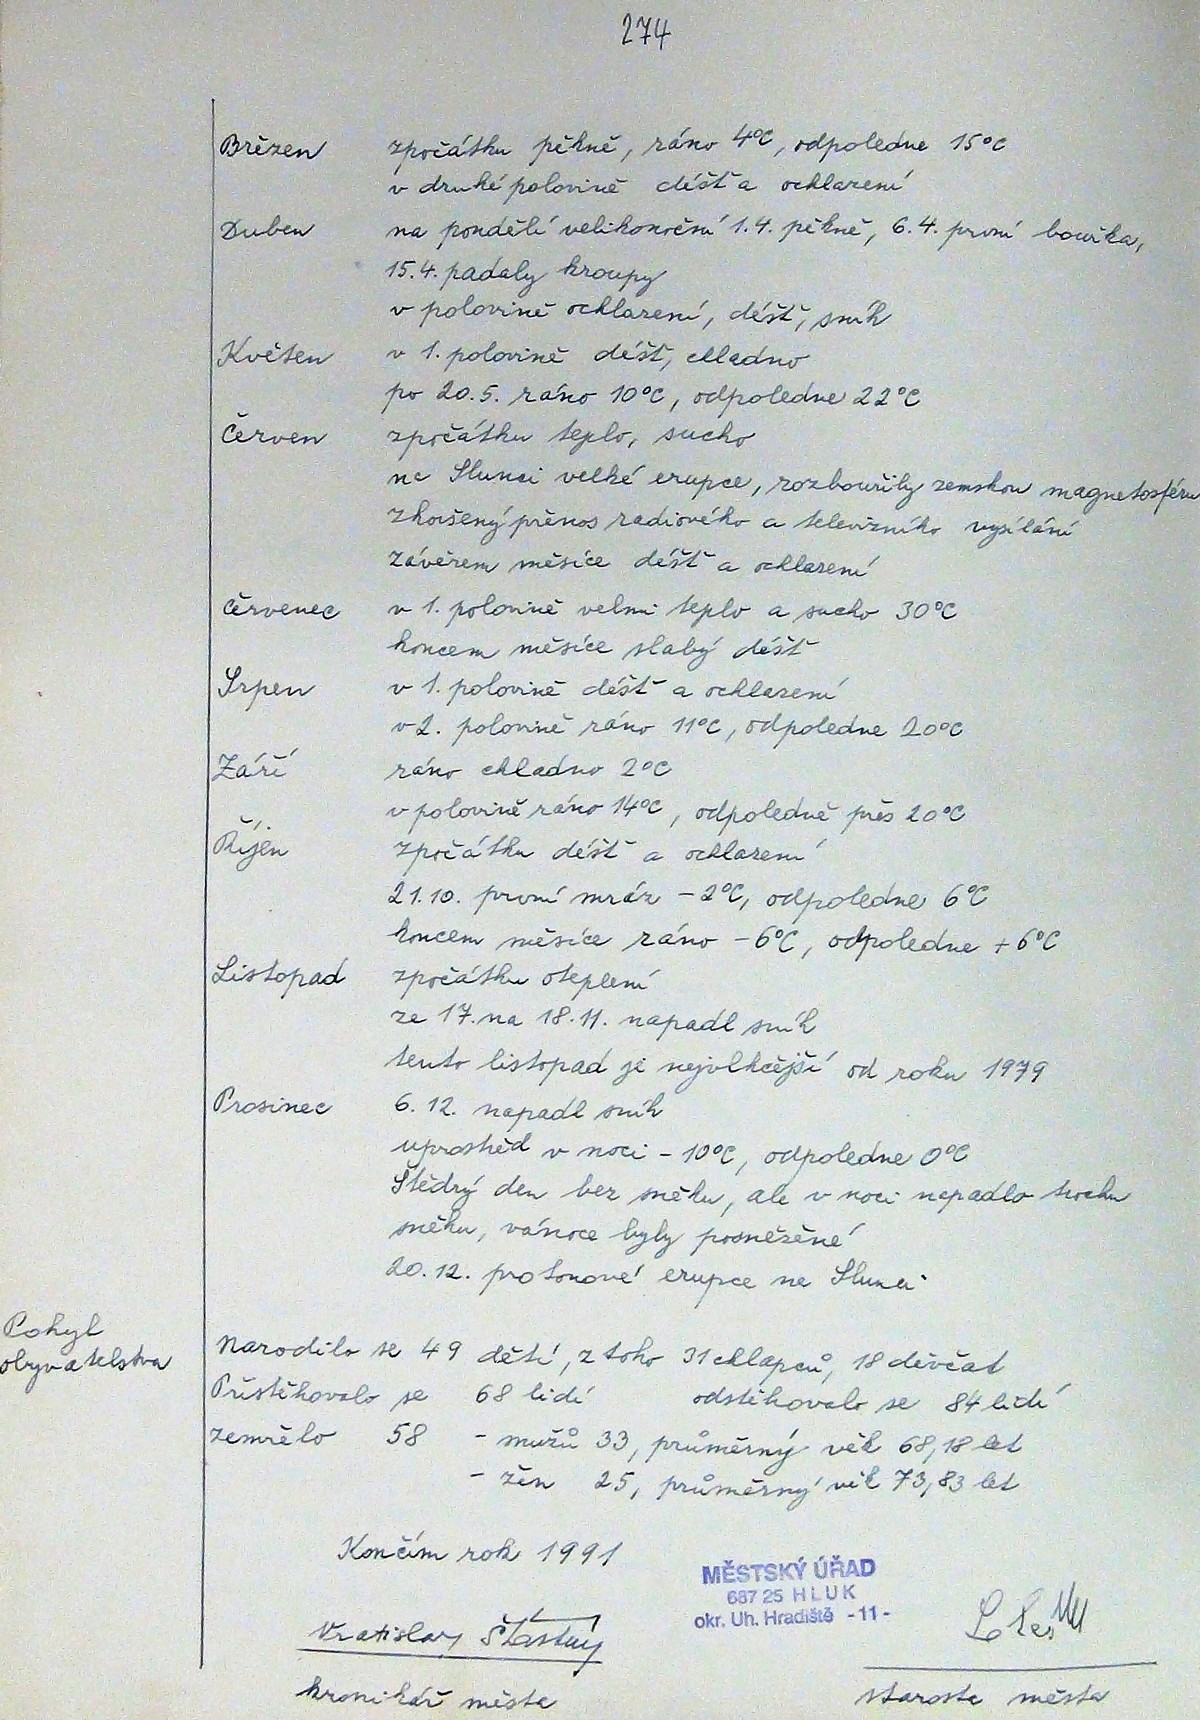 274
Březen zpočátku pěkně, ráno 4°C, odpoledne 15°C
v druhé polovině déšť a ochlazení
Duben na pondělí velikonoční 1.4. pěkně, 6.4. první bouřka,
15.4. padaly kroupy
v polovině ochlazení, déšť, sníh
Květen v 1. polovině déšť, chladno
po 20.5. ráno 10°C, odpoledne 22°C
Červen zpočátku teplo, sucho
na Slunci velké erupce, rozbouřily zemskou magnetosféru
zhoršený přenos radiového a televizního vysílání
závěrem měsíce déšť a ochlazení
Červenec v 1. polovině velmi teplo a sucho 30°C
koncem měsíce slabý déšť
Srpen v 1. polovině déšť a ochlazení
v 2. polovině ráno 11°C, odpoledne 20°C
Září ráno chladno 2°C
v polovině ráno 14°C, odpoledně přes 20°C
Říjen zpočátku déšť a ochlazení
21.10. první mráz -2°C, odpoledne 6°C
koncem měsíce ráno -6°C, odpoledne +6°C
Listopad zpočátku oteplení
ze 17. na 18.11. napadl sníh
tento listopad je nejvlhčejší od roku 1979
Prosinec 6.12. napadl sníh
uprostřed v noci -10°C, odpoledne 0°C
Štědrý den bez sněhu, ale v noci napadlo trochu
sněhu, vánoce byly posněžené
20.12. protonové erupce na Slunci
Pohyb
obyvatelstva
Narodilo se 49 dětí, z toho 31 chlapců, 18 děvčat
Přistěhovalo se 68 lidí odstěhovalo se 84 lidí
zemřelo 58 - mužů 33, průměrný věk 68,18 let
- žen 25, průměrný věk 73,83 let
Končím rok 1991
MĚSTSKÝ ÚŘAD
687 25 HLUK
okr. Uh. Hradiště -11-
Vratislav Šťastný
kronikář města
starosta města